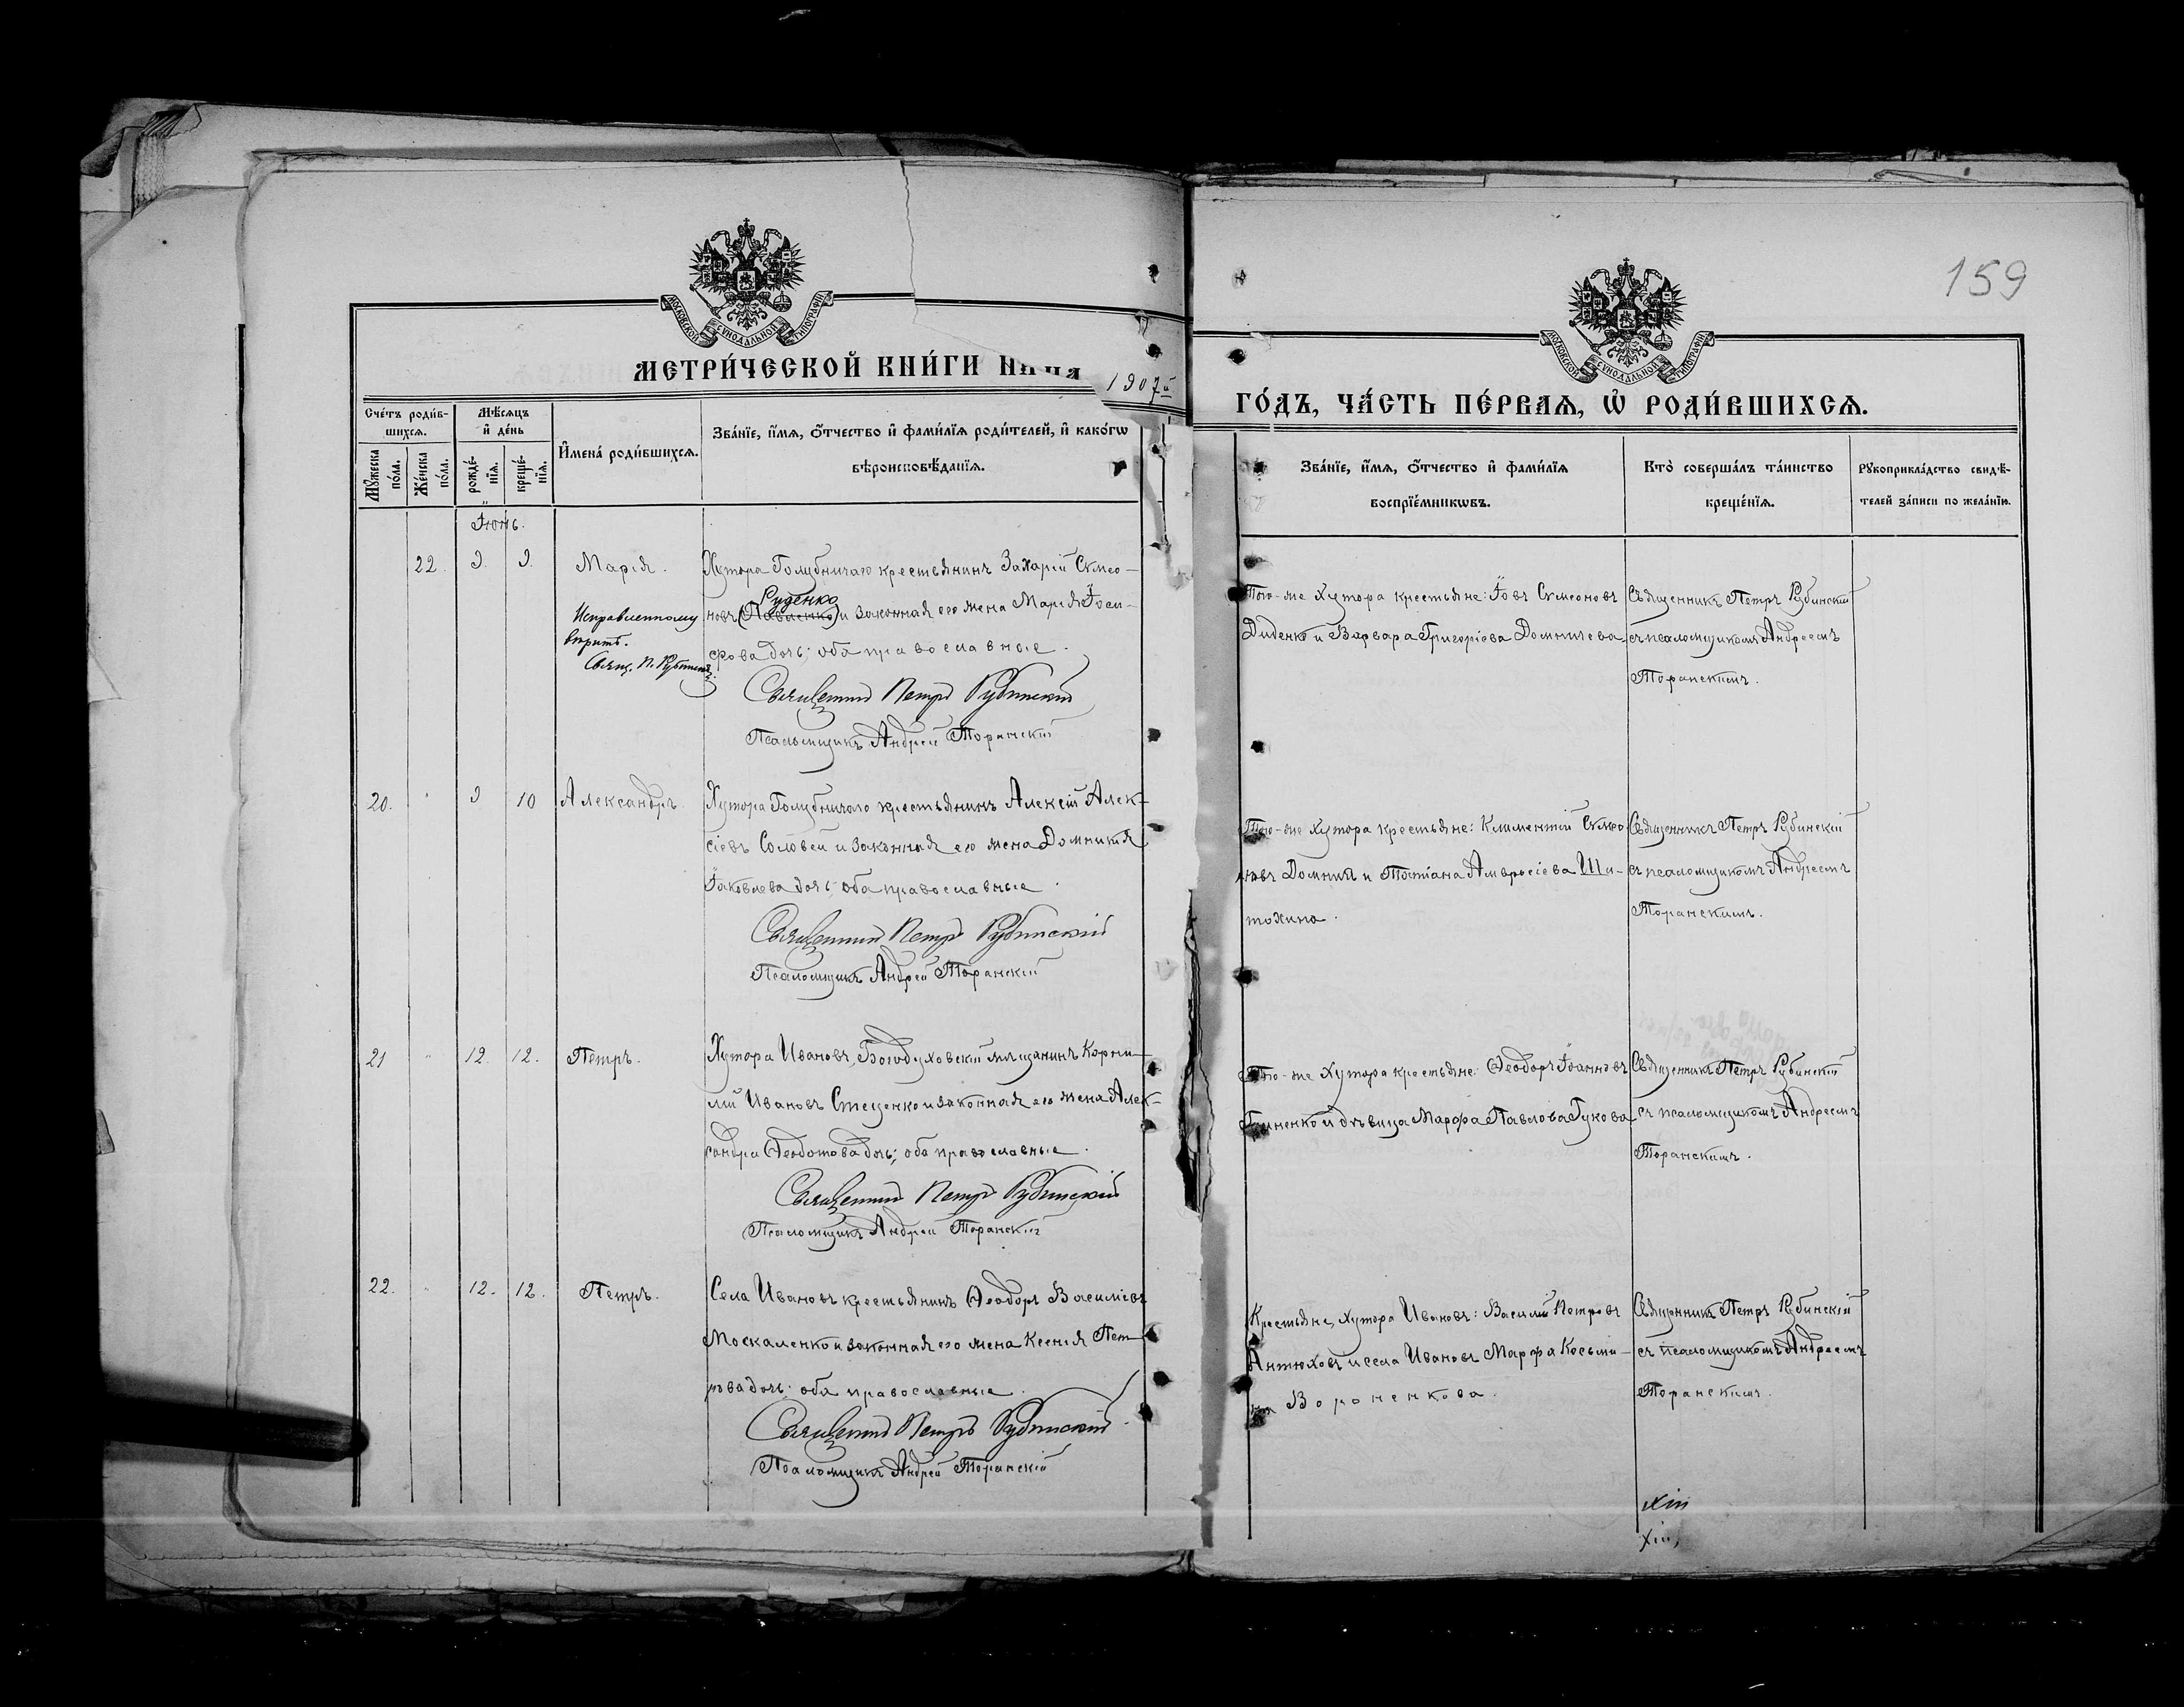 159
МОСКОВСКОЙ СУНОДАЛЬНОЙ ТИПОГРАФІИ
МОСКОВСКОЙ СУНОДАЛЬНОЙ ТИПОГРАФІИ
МЕТРИ́ЧЕСКОЙ КНИ́ГИ НА
1907й
ГО́ДЪ, ЧА́СТЬ ПЕ́РВАѦ, Ѡ҆ РОДИ́ВШИХСѦ.
Сче́тъ роди́в-
шихсѧ.
Мꙋ́жеска по́ла.
Же́нска по́ла.
Мѣ́сѧцъ и҆ де́нь
рожде́-нїѧ.
креще́-нїѧ.
И҆мена̀ роди́вшихсѧ.
Зва́нїе, и҆́мѧ, ѻ҆́тчество и҆ фами́лїѧ роди́телей, и҆ како́гѡ
вѣроисповѣ́данїѧ.
Зва́нїе, и҆́мѧ, ѻ҆́тчество и҆ фами́лїѧ
воспрїе́мникѡвъ.
Кто̀ соверша́лъ та́инство
креще́нїѧ.
Рꙋкоприкла́дство свидѣ́-
телей за́писи по жела́нїю.
Іюнь.
22. 9. 9. Марія.
Хутора Голубничаго крестьянинъ Захарій Симео-
Руденко
новъ (Павленко) и законная его жена Марія Іоси-
фова дочь; оба православные.
Исправленному
вѣрить.
Свящ. П. Рубинскій.
Священникъ Петръ Рубинскій
Псаломщикъ Андрей Торанскій
Того-же хутора крестьяне: Іовъ Симеоновъ
Диденко и Варвара Григоріева Домничева
Священникъ Петръ Рубинскій
съ псаломщикомъ Андреемъ
Торанскимъ.
20. " 9 10 Александръ.
Хутора Голубничаго крестьянинъ Алексій Алек-
сіевъ Соловей и законная его жена Домникія
Іаковлева дочь; оба православные.
Священникъ Петръ Рубинскій
Псаломщикъ Андрей Торанскій
Того-же хутора крестьяне: Климентій Симео-
новъ и Татіана Амвросіева Ши-
тохина.
Священникъ Петръ Рубинскій
съ псаломщикомъ Андреемъ
Торанскимъ.
21 " 12. 12. Петръ.
Хутора Ивановъ, Богодуховскій мѣщанинъ Корни-
лій Ивановъ Стеценко и законная его жена Алек-
сандра Ѳеодотова дочь; оба православные.
Священникъ Петръ Рубинскій
Псаломщикъ Андрей Торанскій
Того-же хутора крестьяне: Ѳеодоръ Іоанновъ
и дѣвица Марфа Павлова Гукова
Священникъ Петръ Рубинскій
съ псаломщикомъ Андреемъ
Торанскимъ.
22. " 12. 12. Петръ.
Села Ивановъ крестьянинъ Ѳеодоръ Василіевъ
Москаленко и законная его жена Ксенія Пет-
рова дочь; оба православные.
Священникъ Петръ Рубинскій
Псаломщикъ Андрей Торанскій
Крестьяне, хутора Ивановъ: Василій Петровъ
Антюховъ и села Ивановъ Марфа Косьми-
на Вороненкова.
Священникъ Петръ Рубинскій
съ псаломщикомъ Андреемъ
Торанскимъ.